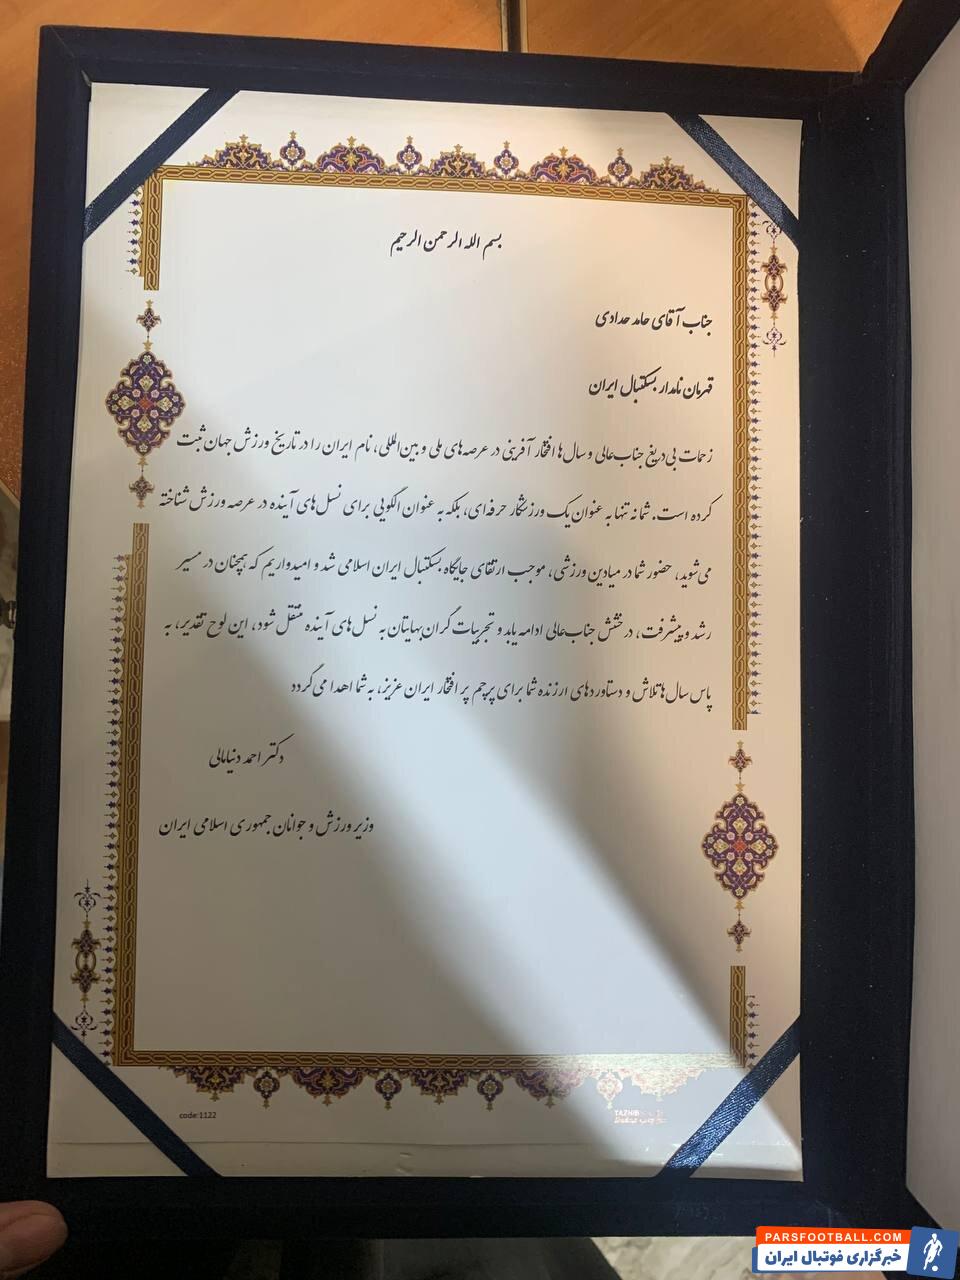 بسم الله الرحمن الرحیم
جناب آقای حامد حدادی
قهرمان نامدار بسکتبال ایران
زحمات بی‌دریغ جناب‌عالی و سال‌ها افتخار آفرینی در عرصه‌های ملی و بین‌المللی، نام ایران را در تاریخ ورزش جهان ثبت
کرده است. شما نه تنها به عنوان یک ورزشکار حرفه‌ای، بلکه به عنوان الگویی برای نسل‌های آینده در عرصه ورزش شناخته
می‌شوید، حضور شما در میادین ورزشی، موجب ارتقای جایگاه بسکتبال ایران اسلامی شد و امیدواریم که همچنان در مسیر
رشد و پیشرفت، درخشش جناب‌عالی ادامه یابد و تجربیات گران‌بهایتان به نسل‌های آینده منتقل شود، این لوح تقدیر، به
پاس سال‌ها تلاش و دستاوردهای ارزنده شما برای پرچم پر افتخار ایران عزیز، به شما اهدا می‌گردد
دکتر احمد دنیامالی
وزیر ورزش و جوانان جمهوری اسلامی ایران
code:1122
PARSFOOTBALL.COM
خبرگزاری فوتبال ایران